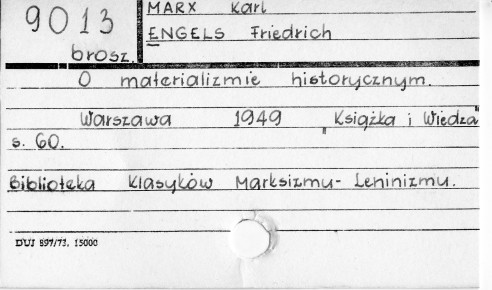 9013
brosz.
MARX Karl
ENGELS Friedrich
O materializmie historycznym.
Warszawa 1949 "Książka i Wiedza"
s. 60.
Biblioteka Klasyków Marksizmu-Leninizmu.
DUJ 897/73. 15000